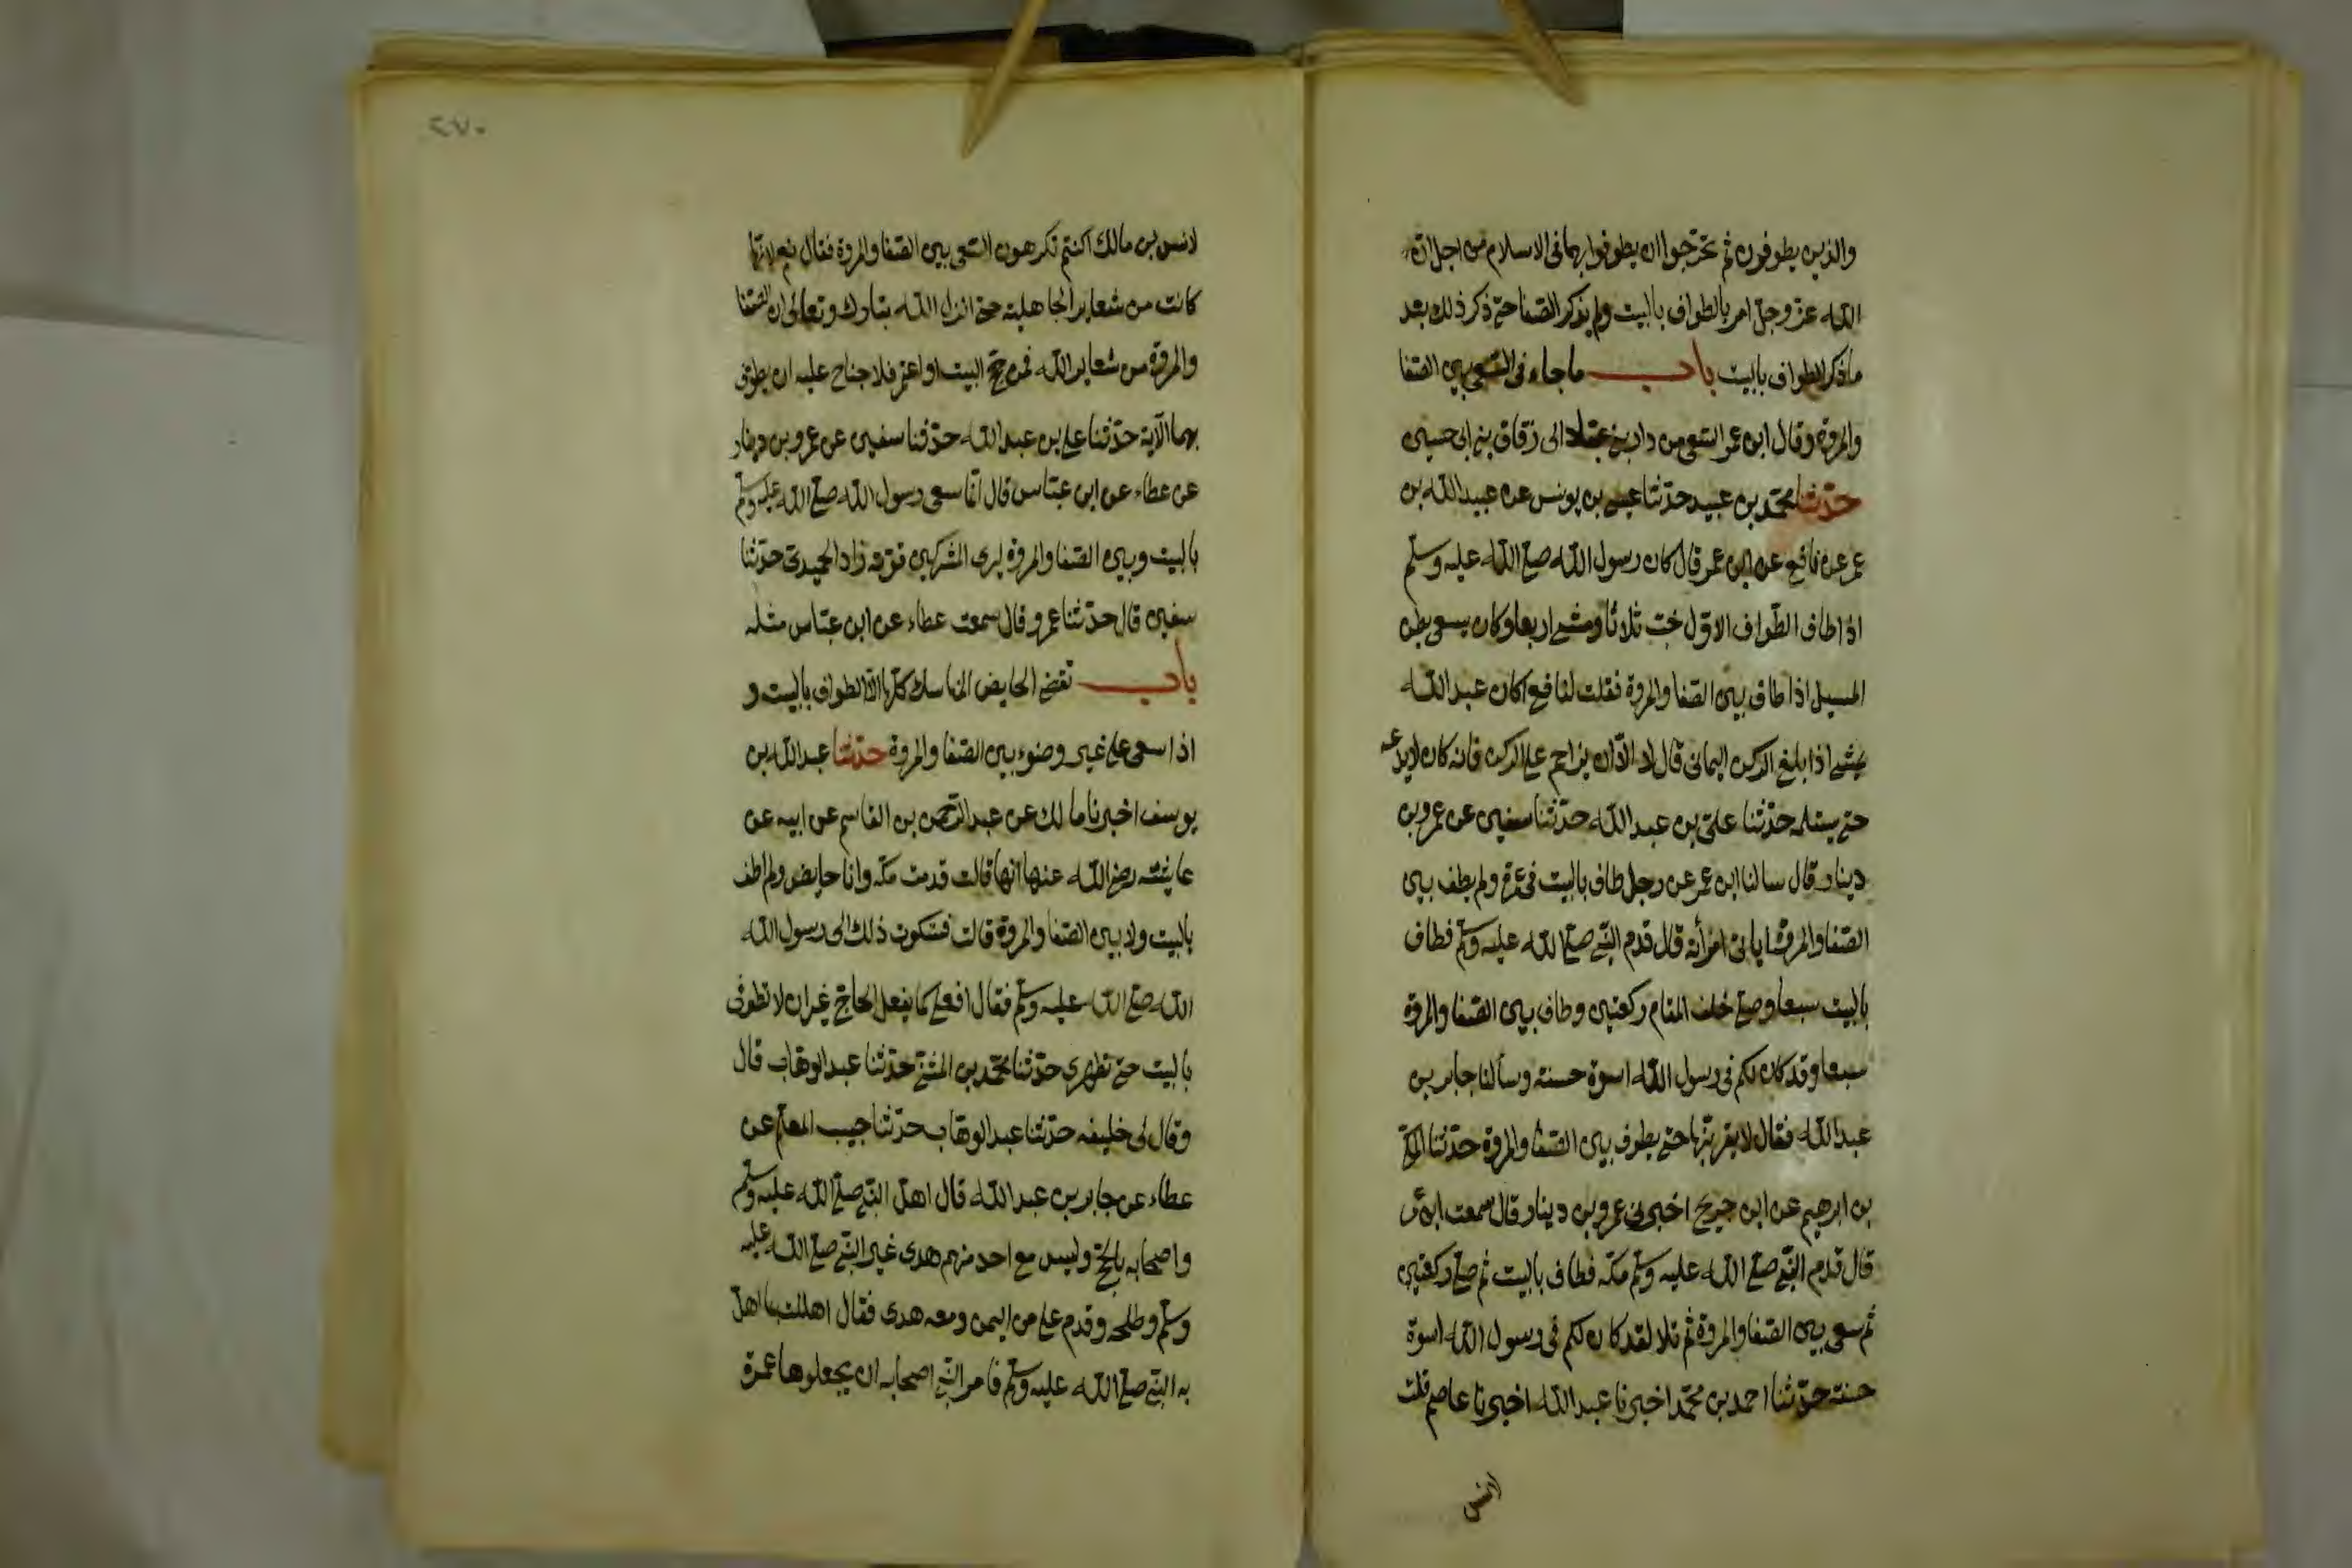 والذين يطوفون ثم تحرجوا ان يطوفوا بهما فى الاسلام من اجل ان
الله عز وجل امر بالطواف بالبيت ولم يذكر الصفا حتى ذكر ذلك بعد
ما ذكر الطواف بالبيت باب ما جاء فى السعى بين الصفا
والمروة وقال ابن عمر السعى من دار بنى عباد الى زقاق بنى ابى حسين
حدثنا محمد بن عبيد حدثنا عيسى بن يونس عن عبيد الله بن
عمر عن نافع عن ابن عمر قال كان رسول الله صلى الله عليه وسلم
اذا طاف الطواف الاول خب ثلاثا ومشى اربعا وكان يسعى بطن
المسيل اذا طاف بين الصفا والمروة فقلت لنافع اكان عبد الله
يمشى اذا بلغ الركن اليمانى قال لا الا ان يزاحم على الركن فانه كان لا يدعه
حتى يستلمه حدثنا على بن عبد الله حدثنا سفين عن عمرو بن
دينار قال سالنا ابن عمر عن رجل طاف بالبيت فى عمرة ولم يطف بين
الصفا والمروة ايأتى امرأته قال قدم النبى صلى الله عليه وسلم فطاف
بالبيت سبعا وصلى خلف المقام ركعتين وطاف بين الصفا والمروة
سبعا وقد كان لكم فى رسول الله اسوة حسنة وسألنا جابر بن
عبد الله فقال لا يقربنها حتى يطوف بين الصفا والمروة حدثنا المكى
بن ابرهيم عن ابن جريج اخبرنى عمرو بن دينار قال سمعت ابن عمر
قال قدم النبى صلى الله عليه وسلم مكة فطاف بالبيت ثم صلى ركعتين
ثم سعى بين الصفا والمروة ثم تلا لقد كان لكم فى رسول الله اسوة
حسنة حدثنا احمد بن محمد اخبرنا عبد الله اخبرنا عاصم قلت
لانس
٢٧٠
لانس بن مالك اكنتم تكرهون السعى بين الصفا والمروة فقال نعم لانها
كانت من شعاير الجاهلية حتى انزل الله تبارك وتعالى ان الصفا
والمروة من شعاير الله فمن حج البيت او اعتمر فلا جناح عليه ان يطوف
بهما الآية حدثنا على بن عبد الله حدثنا سفين عن عمرو بن دينار
عن عطاء عن ابن عباس قال انما سعى رسول الله صلى الله عليه وسلم
بالبيت وبين الصفا والمروة ليرى المشركين قوته زاد الحميدى حدثنا
سفين قال حدثنا عمرو قال سمعت عطاء عن ابن عباس مثله
باب تقضى الحايض المناسك كلها الا الطواف بالبيت و
اذا سعى على غير وضوء بين الصفا والمروة حدثنا عبد الله بن
يوسف اخبرنا مالك عن عبد الرحمن بن القاسم عن ابيه عن
عايشة رضى الله عنها انها قالت قدمت مكة وانا حايض ولم اطف
بالبيت ولا بين الصفا والمروة قالت فشكوت ذلك الى رسول الله
الله صلى الله عليه وسلم فقال افعلى كما يفعل الحاج غير ان لا تطوفى
بالبيت حتى تطهرى حدثنا محمد بن المثنى حدثنا عبد الوهاب قال
وقال لى خليفة حدثنا عبد الوهاب حدثنا حبيب المعلم عن
عطاء عن جابر بن عبد الله قال اهل النبى صلى الله عليه وسلم
واصحابه بالحج وليس مع احد منهم هدى غير النبى صلى الله عليه
وسلم وطلحة وقدم على من اليمن ومعه هدى فقال اهللت بما اهل
به النبى صلى الله عليه وسلم فامر النبى اصحابه ان يجعلوها عمرة